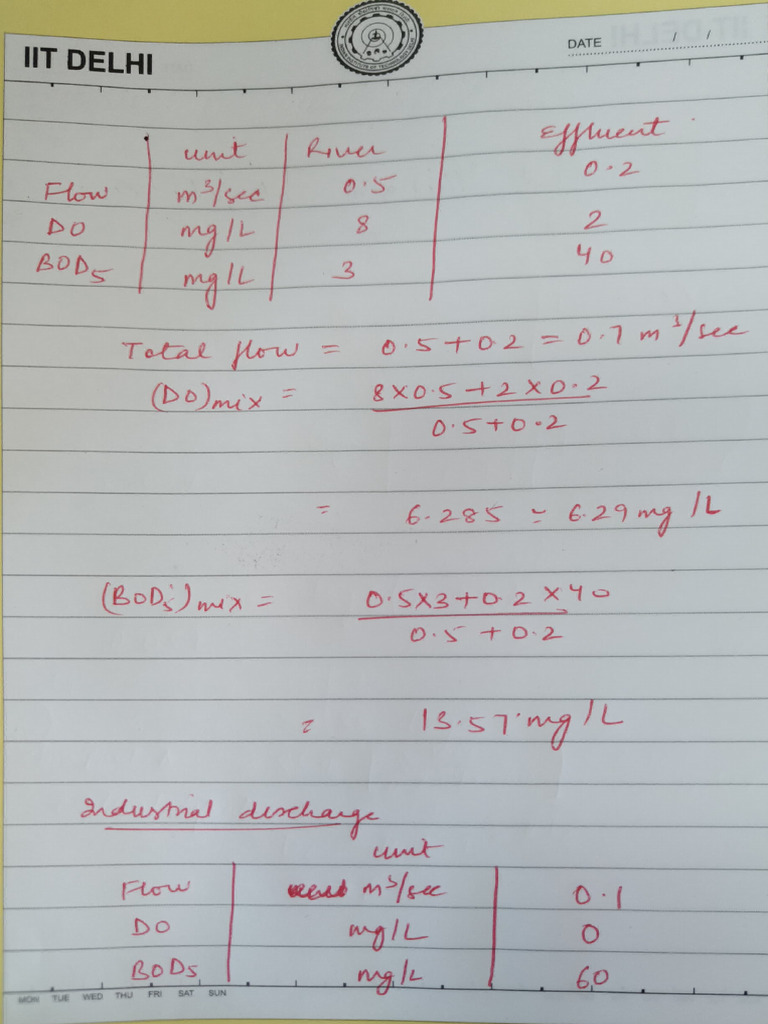 IIT DELHI
DATE / /
unit River Effluent
Flow m³/sec 0.5 0.2
DO mg/L 8 2
BOD₅ mg/L 3 40
Total flow = 0.5+0.2 = 0.7 m³/sec
(DO)mix = 8×0.5+2×0.2
0.5+0.2
= 6.285 ≃ 6.29 mg/L
(BOD₅)mix = 0.5×3+0.2×40
0.5+0.2
= 13.57 mg/L
Industrial discharge
unit
Flow m³/sec 0.1
DO mg/L 0
BOD₅ mg/L 60
MON TUE WED THU FRI SAT SUN